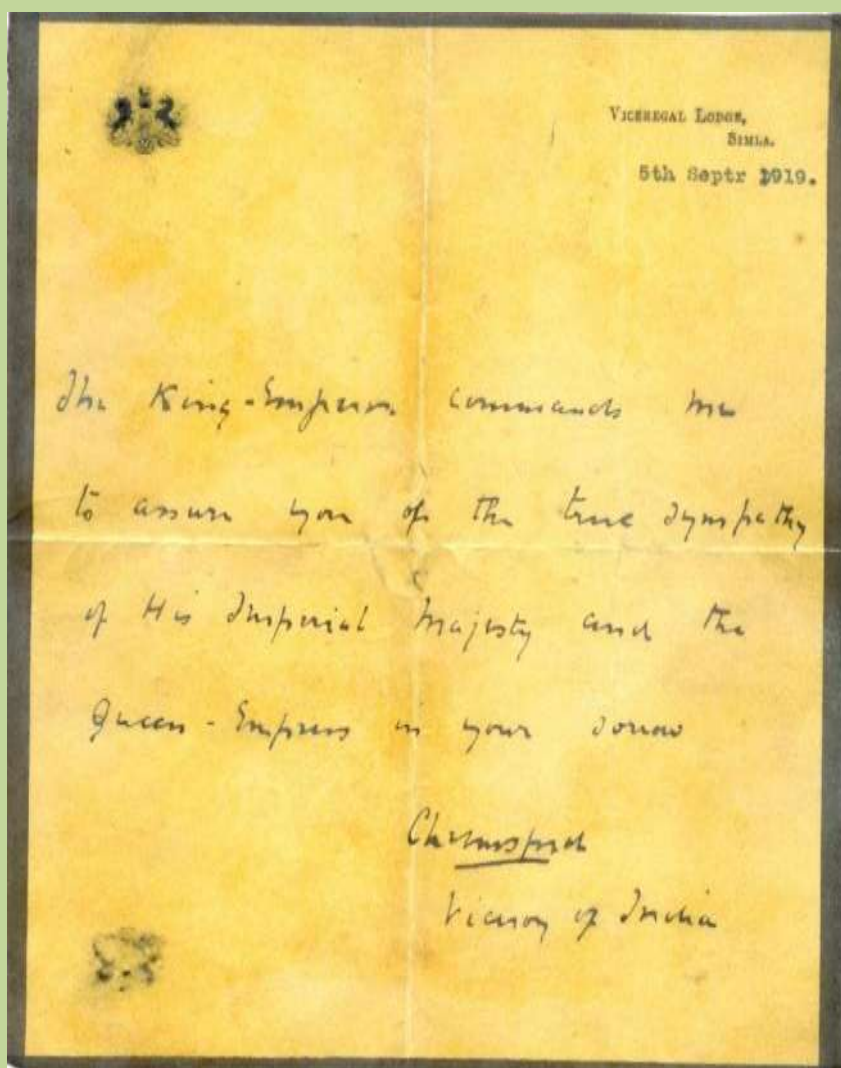 VICEREGAL LODGE,
SIMLA.
5th Septr 1919.
The King-Emperor commands me
to assure you of the true sympathy
of His Imperial Majesty and the
Queen-Empress in your sorrow
Chelmsford
Viceroy of India